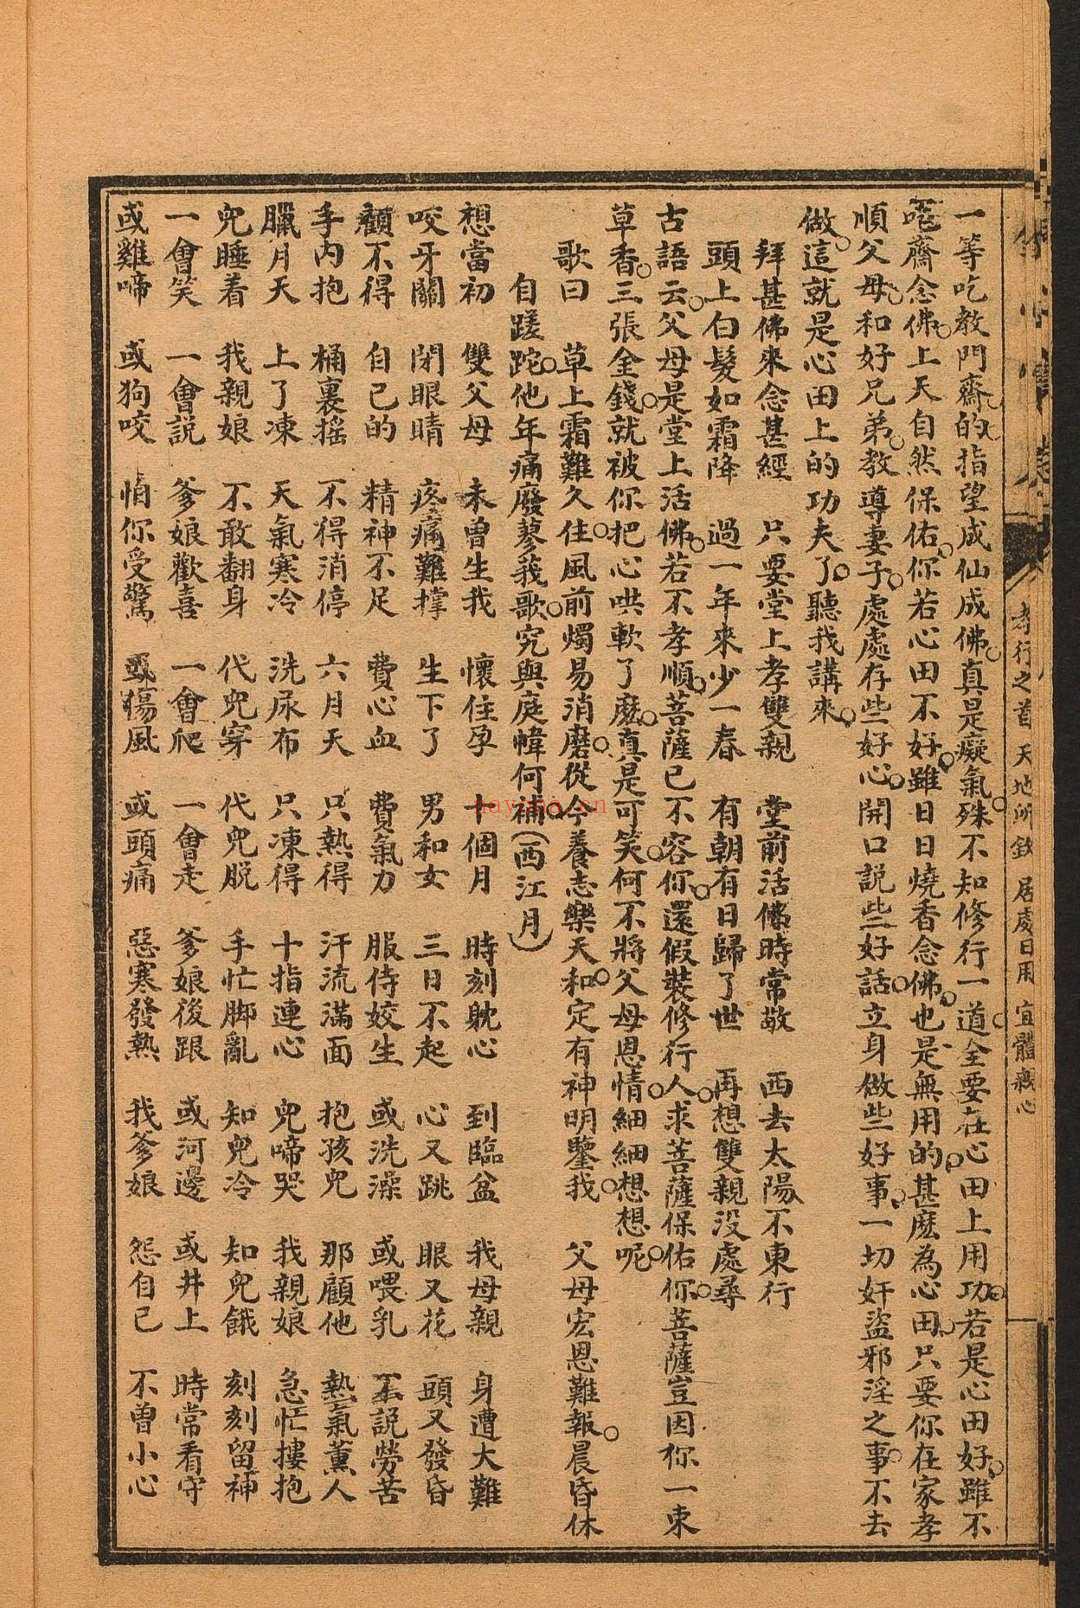 孝行之首 天地所欽 居處日用 宜體親心
一等吃教門齋的指望成仙成佛真是癡氣殊不知修行一道全要在心田上用功若是心田好雖不
吃齋念佛上天自然保佑你若心田不好雖日日燒香念佛也是無用的甚麽為心田只要你在家孝
順父母和好兄弟教導妻子處處存些好心開口説些好話立身做些好事一切奸盜邪淫之事不去
做這就是心田上的功夫了聽我講來
拜甚佛來念甚經 只要堂上孝雙親 堂前活佛時常敬 西去太陽不東行
頭上白髮如霜降 過一年來少一春 有朝有日歸了世 再想雙親没處尋
古語云父母是堂上活佛若不孝順菩薩已不容你還假裝修行人求菩薩保佑你菩薩豈因你一束
草香三張金錢就被你把心哄軟了麽真是可笑何不將父母恩情細細想想呢
歌曰 草上霜難久住風前燭易消磨從今養志樂天和定有神明鑒我 父母宏恩難報晨昏休
自蹉跎他年痛廢蓼莪歌究與庭幃何補(西江月)
想當初 雙父母 未曾生我 懷住孕 十個月 時刻躭心 到臨盆 我母親 身遭大難
咬牙關 閉眼睛 疼痛難撑 生下了 男和女 三日不起 心又跳 眼又花 頭又發昏
顧不得 自己的 精神不足 費心血 費氣力 服侍姣生 或洗澡 或喂乳 不説勞苦
手内抱 桶裏摇 不得消停 六月天 只熱得 汗流滿面 抱孩兒 那顧他 熱氣薰人
臘月天 上了凍 天氣寒冷 洗尿布 只凍得 十指連心 兒啼哭 我親娘 急忙摟抱
兒睡着 我親娘 不敢翻身 代兒穿 代兒脱 手忙脚亂 知兒冷 知兒餓 刻刻留神
一會笑 一會説 爹娘歡喜 一會爬 一會走 爹娘後跟 或河邊 或井上 時常看守
或雞啼 或狗咬 怕你受驚 或傷風 或頭痛 惡寒發熱 我爹娘 怨自己 不曾小心